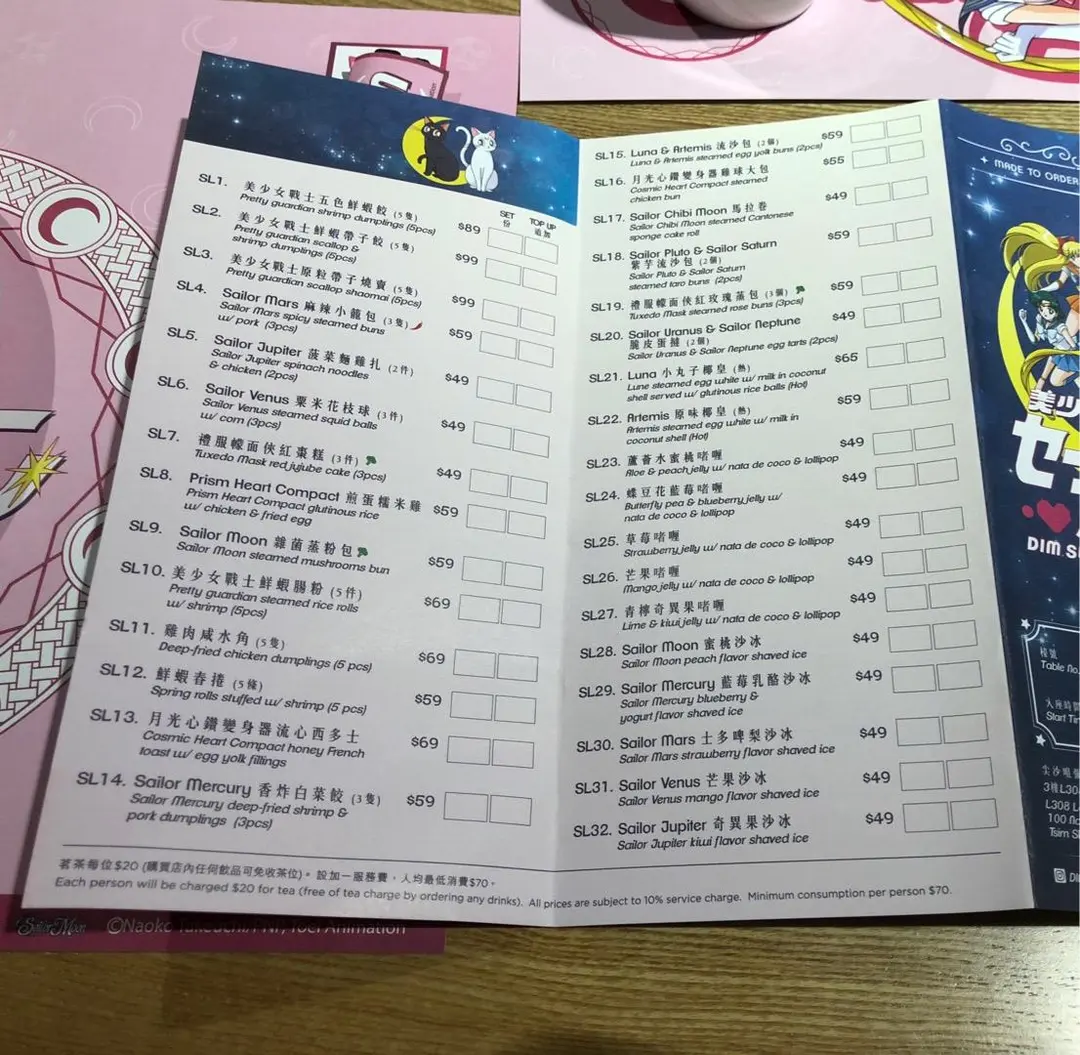 SET
份
TOP UP
追加
SL1. 美少女戰士五色鮮蝦餃 (5隻)
Pretty guardian shrimp dumplings (5pcs)
$89
SL2. 美少女戰士鮮蝦帶子餃 (5隻)
Pretty guardian scallop &
shrimp dumplings (5pcs)
$99
SL3. 美少女戰士原粒帶子燒賣 (5隻)
Pretty guardian scallop shaomai (5pcs)
$99
SL4. Sailor Mars 麻辣小籠包 (3隻)
Sailor Mars spicy steamed buns
w/ pork (3pcs)
$59
SL5. Sailor Jupiter 菠菜麵雞扎 (2件)
Sailor Jupiter spinach noodles
& chicken (2pcs)
$49
SL6. Sailor Venus 粟米花枝球 (3件)
Sailor Venus steamed squid balls
w/ corn (3pcs)
$49
SL7. 禮服幪面俠紅棗糕 (3件)
Tuxedo Mask red jujube cake (3pcs)
$49
SL8. Prism Heart Compact 煎蛋糯米雞
Prism Heart Compact glutinous rice
w/ chicken & fried egg
$59
SL9. Sailor Moon 雜菌蒸粉包
Sailor Moon steamed mushrooms bun
$59
SL10. 美少女戰士鮮蝦腸粉 (5件)
Pretty guardian steamed rice rolls
w/ shrimp (5pcs)
$69
SL11. 雞肉咸水角 (5隻)
Deep-fried chicken dumplings (5 pcs)
$69
SL12. 鮮蝦春捲 (5條)
Spring rolls stuffed w/ shrimp (5 pcs)
$59
SL13. 月光心鑽變身器流心西多士
Cosmic Heart Compact honey French
toast w/ egg yolk fillings
$69
SL14. Sailor Mercury 香炸白菜餃 (3隻)
Sailor Mercury deep-fried shrimp &
pork dumplings (3pcs)
$59
SL15. Luna & Artemis 流沙包 (2個)
Luna & Artemis steamed egg yolk buns (2pcs)
$59
SL16. 月光心鑽變身器雞球大包
Cosmic Heart Compact steamed
chicken bun
$55
SL17. Sailor Chibi Moon 馬拉卷
Sailor Chibi Moon steamed Cantonese
sponge cake roll
$49
SL18. Sailor Pluto & Sailor Saturn
紫芋流沙包 (2個)
Sailor Pluto & Sailor Saturn
steamed taro buns (2pcs)
$59
SL19. 禮服幪面俠紅玫瑰蒸包 (3個)
Tuxedo Mask steamed rose buns (3pcs)
$59
SL20. Sailor Uranus & Sailor Neptune
脆皮蛋撻 (2個)
Sailor Uranus & Sailor Neptune egg tarts (2pcs)
$49
SL21. Luna 小丸子椰皇 (熱)
Lune steamed egg white w/ milk in coconut
shell served w/ glutinous rice balls (Hot)
$65
SL22. Artemis 原味椰皇 (熱)
Artemis steamed egg white w/ milk in
coconut shell (Hot)
$59
SL23. 蘆薈水蜜桃啫喱
Aloe & peach jelly w/ nata de coco & lollipop
$49
SL24. 蝶豆花藍莓啫喱
Butterfly pea & blueberry jelly w/
nata de coco & lollipop
$49
SL25. 草莓啫喱
Strawberry jelly w/ nata de coco & lollipop
$49
SL26. 芒果啫喱
Mango jelly w/ nata de coco & lollipop
$49
SL27. 青檸奇異果啫喱
Lime & kiwi jelly w/ nata de coco & lollipop
$49
SL28. Sailor Moon 蜜桃沙冰
Sailor Moon peach flavor shaved ice
$49
SL29. Sailor Mercury 藍莓乳酪沙冰
Sailor Mercury blueberry &
yogurt flavor shaved ice
$49
SL30. Sailor Mars 士多啤梨沙冰
Sailor Mars strawberry flavor shaved ice
$49
SL31. Sailor Venus 芒果沙冰
Sailor Venus mango flavor shaved ice
$49
SL32. Sailor Jupiter 奇異果沙冰
Sailor Jupiter kiwi flavor shaved ice
$49
茗茶每位$20 (購買店內任何飲品可免收茶位)。設加一服務費,人均最低消費$70。
Each person will be charged $20 for tea (free of tea charge by ordering any drinks). All prices are subject to 10% service charge. Minimum consumption per person $70.
MADE TO ORDER
美少
セ
DIM S
檯號
Table No.
入座時間
Start Tim
尖沙咀
3樓L30
L308 L
100 
Tsim S
DI
Sailor Moon ©Naoko Takeuchi/PNP, Toei Animation